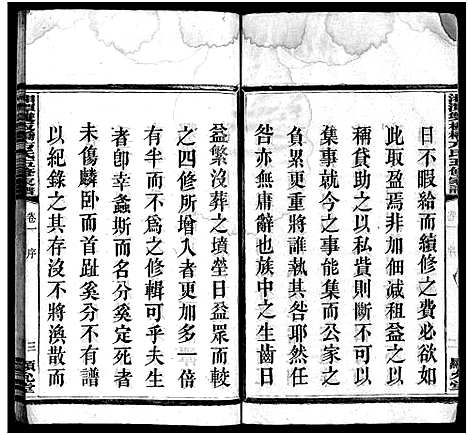 日不暇給而續修之費必欲如
此取盈焉非加減租益之以
稱貸助之以私費則斷不可以
集事就今之事能集而公家之
負累更重將誰執其咎耶然任
咎亦無庸辭也族中之生齒日
益繁沒葬之墳塋日益眾而較
之四修所增入者更加多一倍
有奇而不為之修輯可乎夫生
者即幸螽斯而名分奠定死者
未傷麟卧而首趾奚分不有譜
以紀錄之其存沒不將渙散而
卷一 序
三